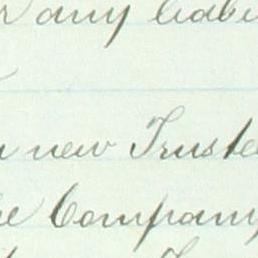 any liabi
a new Truste
e Company